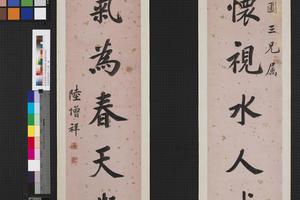 三兄屬
懷視水人
氣為春天
陸增祥